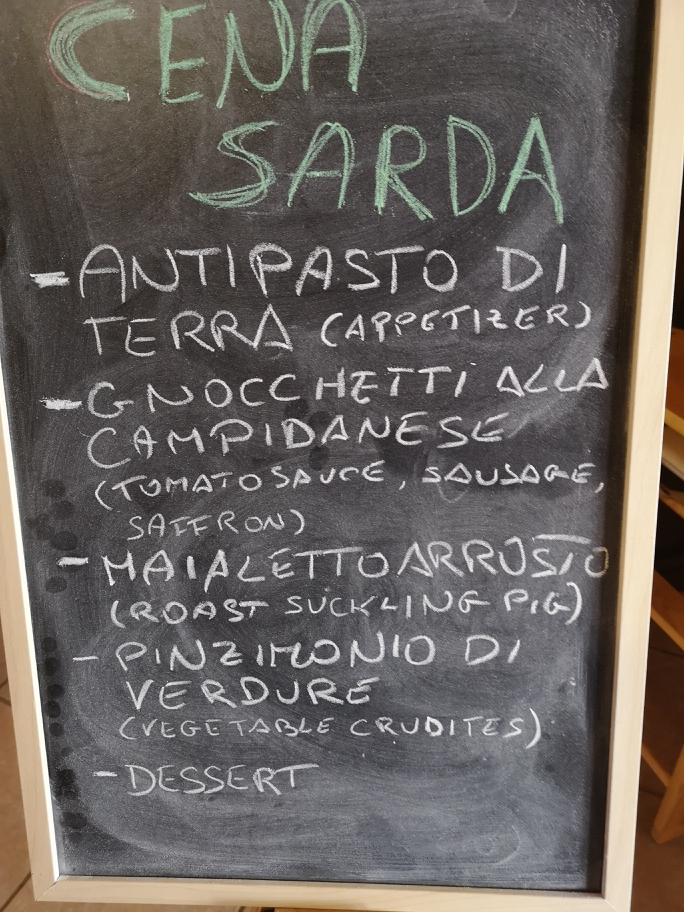 CENA
SARDA
- ANTIPASTO DI
TERRA (APPETIZER)
- GNOCCHETTI ALLA
CAMPIDANESE
(TOMATO SAUCE, SAUSAGE,
SAFFRON)
- MAIALETTO ARROSTO
(ROAST SUCKLING PIG)
- PINZIMONIO DI
VERDURE
(VEGETABLE CRUDITES)
- DESSERT